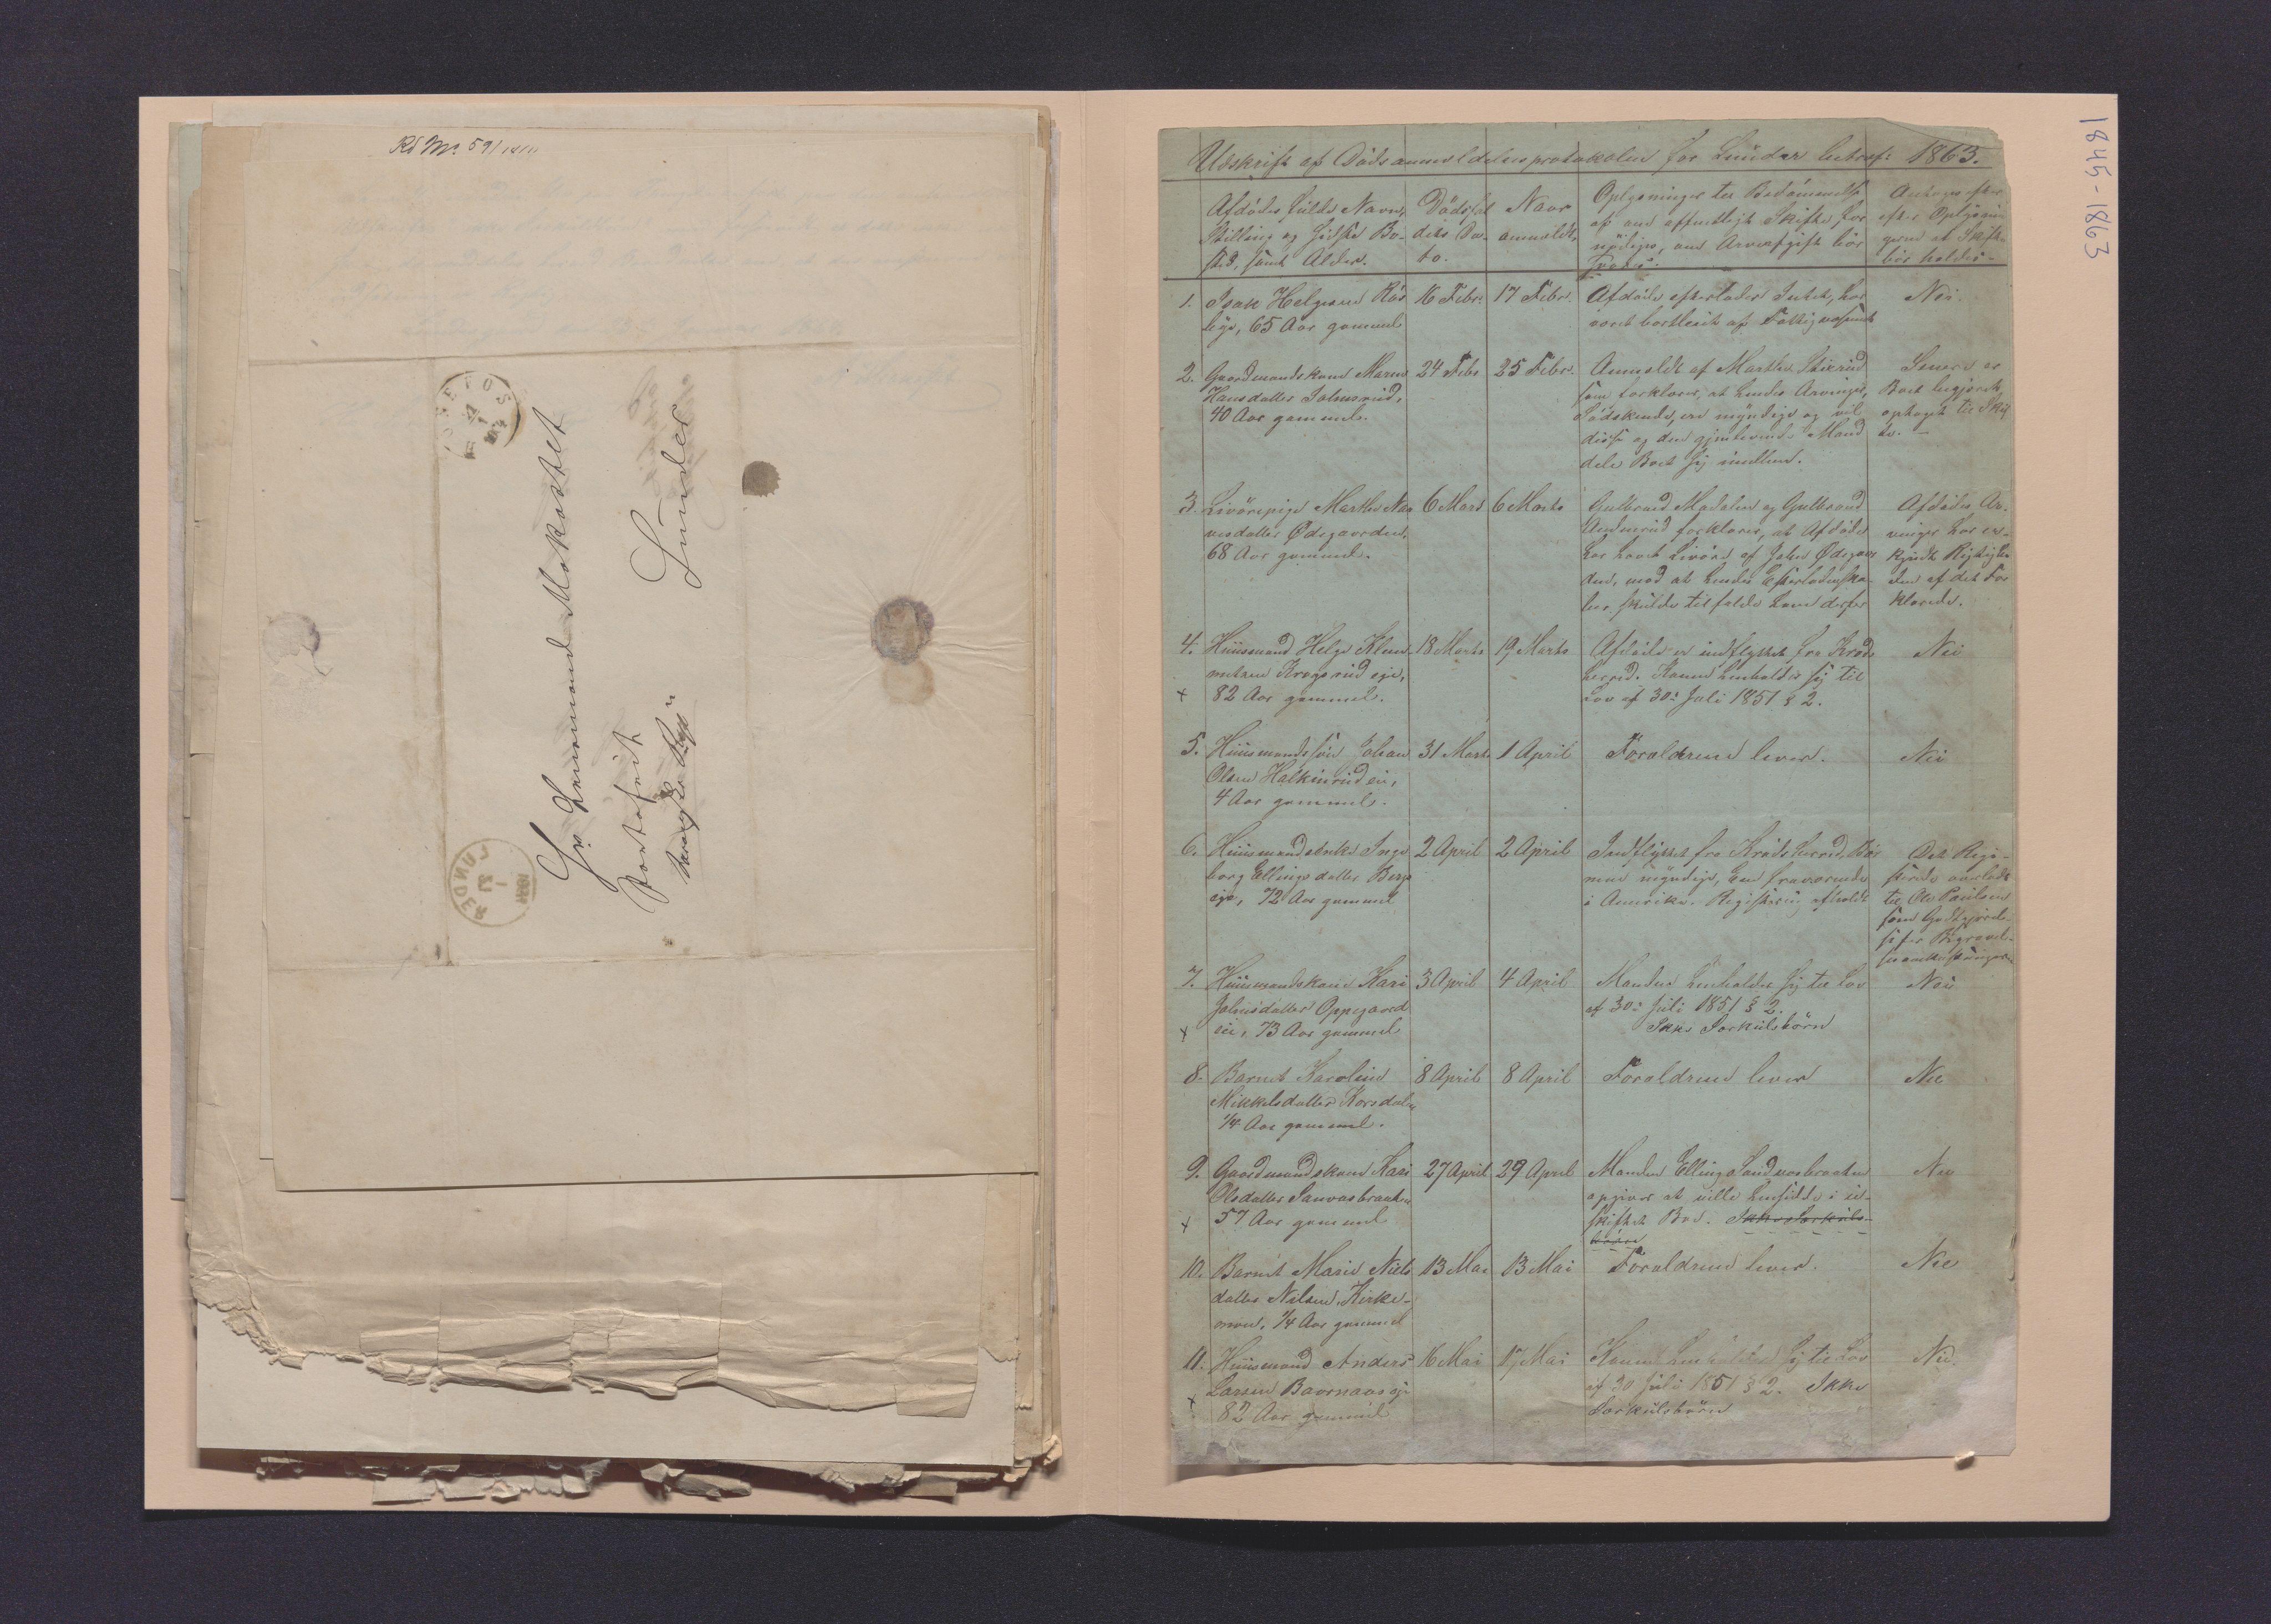 1845-1863
Hr. Lensmand Mokastet
Portofrit
Lunder
LUNDER
Udskrift af Dödsanmeldelsesprotokolen for Lunder betræf: 1863.
Afdödes fulde Navn,
Stilling og sidste Bo-
sted, samt Alder.
Dödsfal
dets Da-
to.
Naar
anmeldt,
Oplysninger til Bedömmelse
af om offentligt Skifte, er
nödigt, om Arveafgift bör
svares.
efter Oplysnin
gerne at Skifte
bör holdes-
1. Isak Helgesen Rös
eije, 65 Aar gammel
16 Febr.
17 Febr.
Afdöde efterlader Intet, har
været bortlejet af Fattigvæsenet
Nei.
2. Gaardmandskone Maren
Hansdatter Johnsrud,
40 Aar gammel.
24 Febr
25 Febr.
Anmeldt af Marthe
som forklarer, at hendes Arvinger,
Södskende, ere myndige og vil
disse og den gjenlevende Mand
dele Boet sig imellem.
Senere er
Boet begjæret
optaget til Skif
te. -
3. Livörepige Marthe Nar
vesdatter Ødegaarden,
68 Aar gammel.
6 Marts
6 Marts
Gulbrand Modalen og Gulbrand
forklarer, at Afdöde
har havt Livöre af John Ødegaar
den, mod at hendes Efterladenska
ber skulde tilfalde ham derfor
Afdödes Ar-
vinger har er-
kjendt Rigtighe
den af det For
klarede.
4. Huusmand Helge Klem-
metsen Krogsrud eje,
x 82 Aar gammel.
18 Marts
19 Marts
Afdöde er indflyttet fra Kröds
herred. Konen henholder sig til
Lov af 30. Juli 1851 § 2.
Nei
5. Huusmandssön Johan
Olsen Halkinrud eie,
4 Aar gammel.
31 Marts
1 April
Foraldrene lever.
Nei
6. Huusmandsenke Inge
borg Ellingsdatter Berg
eje, 72 Aar gammel
2 April
2 April
Indflyttet fra Krödsherred, Bör
nene myndige, Een fraværende
i Amerika. Registrering afholdt
Det Regi-
strerede overladt
til Ole Paulsen
som Godtgjörel-
se for Begravel-
sesomkostninger
7. Huusmandskone Kari
Johnsdatter Oppegaard
x eie, 73 Aar gammel
3 April
4 April
Manden henholder sig til Lov
af 30. Juli 1851 § 2.
Ikke Særkulsbörn
Nei
8. Barnet Karoline
Mikkelsdatter Korsdalen
1/4 Aar gammel.
8 April
8 April
Foraldrene lever
Nei
9. Gaardmandskone Kari
Olsdatter Sauvasbraaten
x 57 Aar gammel
27 April
29 April
Manden Elling Sandvasbraaten
opgiver at ville hensidde i u-
skiftet Boe. Ikke Særkuls-
börn
Nei
10. Barnet Marie Niels
datter Nilsen, Kirke-
moen, 1/4 Aar gammel
13 Mai
13 Mai
Foraldrene lever.
Nei
11. Huusmand Anders
Larsen Baarnaas eje
x 82 Aar gammel
16 Mai
17 Mai
Konen henholder sig til Lov
af 30 Juli 1851 § 2. Ikke
Særkulsbörn
Nei.